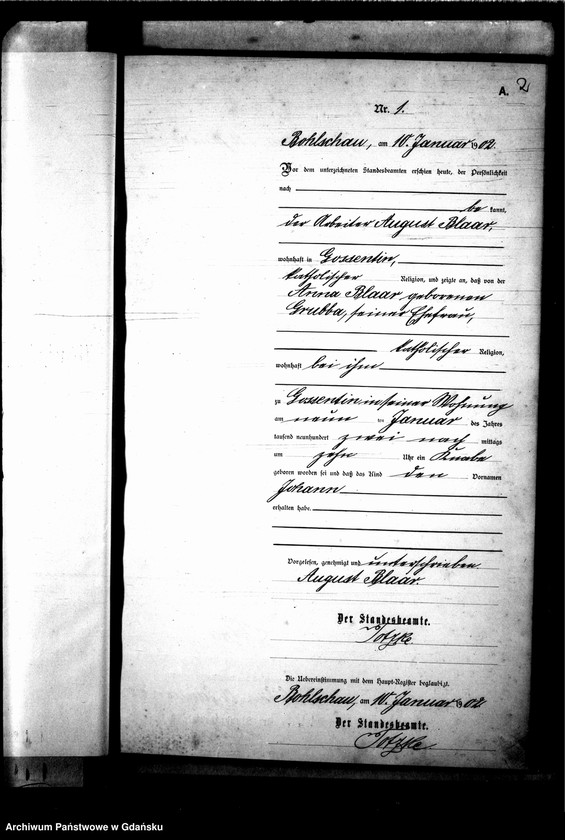 A. 2
Nr. 1.
Bohlschau, am 10. Januar 1902.
Vor dem unterzeichneten Standesbeamten erschien heute, der Persönlichkeit
nach
be kannt,
der Arbeiter August Blaar,
wohnhaft in Gossentin,
katholischer Religion, und zeigte an, daß von der
Anna Blaar geborenen
Grubba, seiner Ehefrau,
katholischer Religion,
wohnhaft bei ihm
zu Gossentin in seiner Wohnung
am neun ten Januar des Jahres
tausend neunhundert zwei nach mittags
um zehn Uhr ein Knabe
geboren worden sei und daß das Kind den Vornamen
Johann
erhalten habe.
Vorgelesen, genehmigt und unterschrieben
August Blaar.
Der Standesbeamte.
Totzke.
Die Uebereinstimmung mit dem Haupt-Register beglaubigt.
Bohlschau, am 10. Januar 1902
Der Standesbeamte.
Totzke
Archiwum Państwowe w Gdańsku